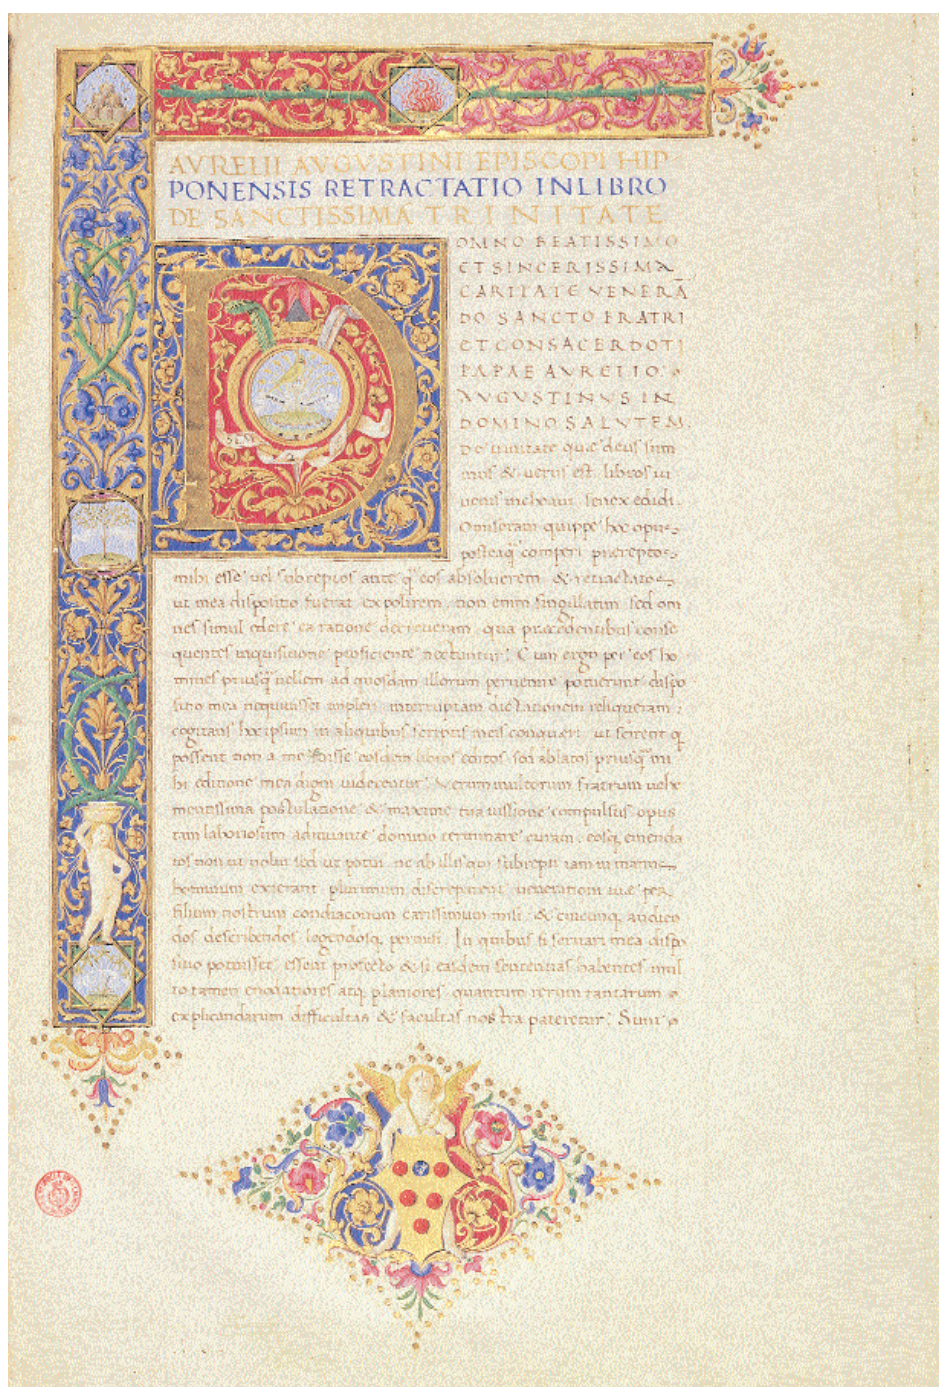 AVRELII AVGVSTINI EPISCOPI HIP
PONENSIS RETRACTATIO IN LIBRO
DE SANCTISSIMA TRINITATE
DOMNO BEATISSIMO
ET SINCERISSIMA
CARITATE VENERĀ
DO SANCTO FRATRI
ET CONSACERDOTI
PAPAE AVRELIO
AVGVSTINVS IN
DOMINO SALVTEM.
De trinitate quae deus sum
mus & uerus est libros iu
uenis inchoaui senex edidi.
Omiseram quippe hoc opus
posteaq̄ comperi praereptos
mihi esse uel subreptos ante q̄ eos absoluerem & retractatos
ut mea dispositio fuerat expolirem. non enim singillatim sed om
nes simul edere ea ratione decreueram. qua praecedentibus conse
quentes inquisitione proficiente nectuntur. Cum ergo per eos ho
mines priusq̄ uellem ad quosdam illorum peruenire potuerunt dispo
sitio mea nequiuisset impleri interruptam dictationem reliqueram.
cogitans hoc ipsum in aliquibus scriptis meis conqueri. ut scirent q
possent non a me fuisse eosdem libros editos. sed ablatos priusq̄ mi
hi editione mea digni uiderentur. Verum multorum fratrum uehe
mentissima postulatione & maxime tua iussione compulsus opus
tam laboriosum adiuuante domino terminare curaui. eosq; emenda
tos non ut uolui sed ut potui. ne ab illis qui subrepti iam in manus
hominum exierant plurimum discreparent. uenerationi tuae per
filium nostrum condiaconum carissimum misi. & cuicunq; audien
dos describendos legendosq; permisi. In quibus si seruari mea dispo
sitio potuisset. essent profecto & si easdem sententias habentes mul
to tamen enodatiores atq; planiores. quantum rerum tantarum
explicandarum difficultas & facultas nostra pateretur. Sunt